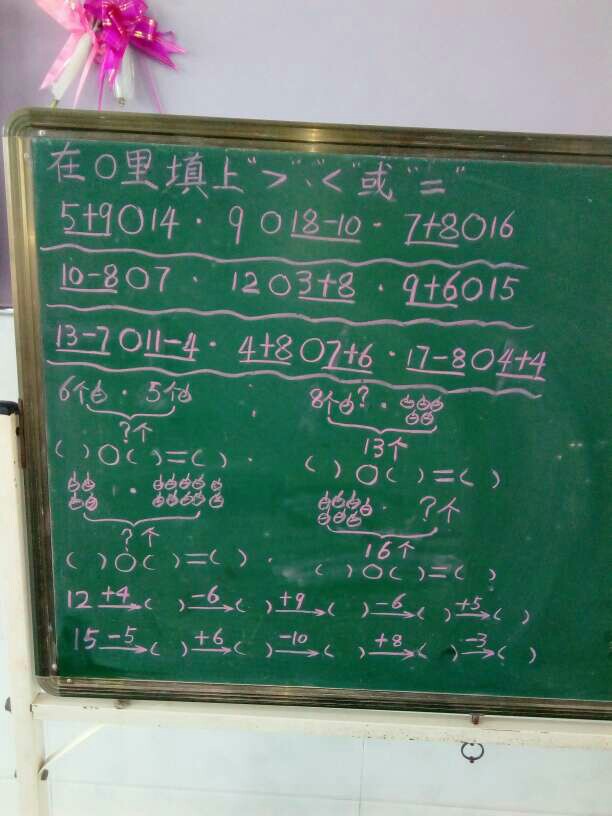 在○里填上">"、"<"或"="
5+9○14 · 9○18-10 · 7+8○16
10-8○7 · 12○3+8 · 9+6○15
13-7○11-4 · 4+8○7+6 · 17-8○4+4
6个 · 5个 8个 ? ·
?个 13个
( )○( )=( ) · ( )○( )=( )
· · ?个
?个 16个
( )○( )=( ) · ( )○( )=( )
12 +4→( ) -6→( ) +9→( ) -6→( ) +5→( )
15 -5→( ) +6→( ) -10→( ) +8→( ) -3→( )